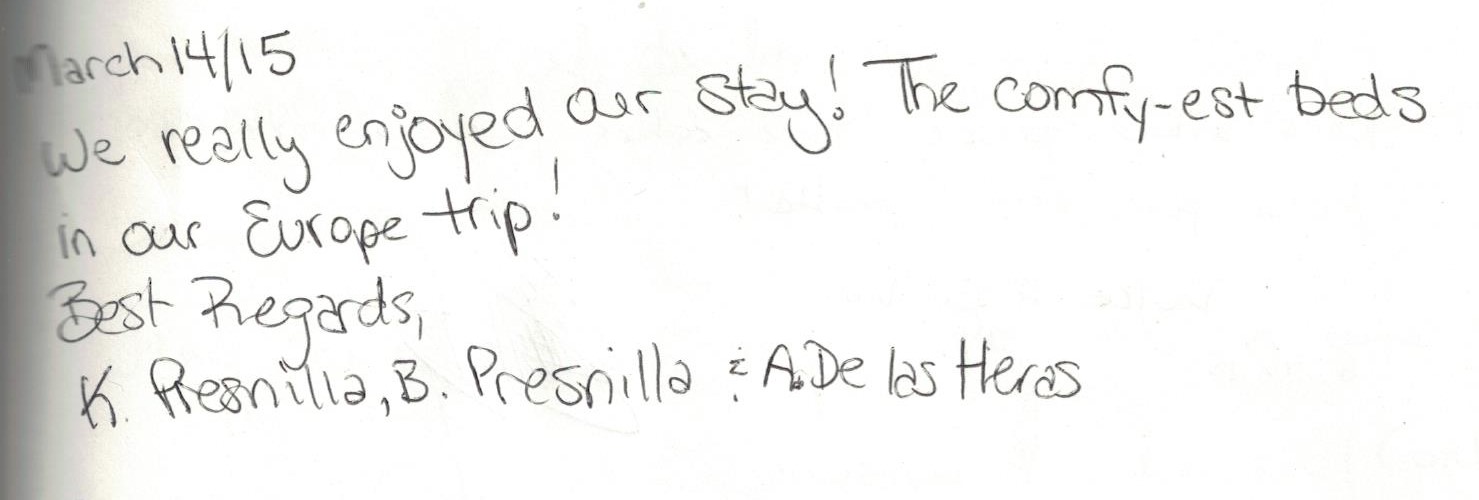 March 14/15
We really enjoyed our stay! The comfy-est beds
in our Europe trip!
Best Regards,
K. Presnilla, B. Presnilla & A. De las Heras